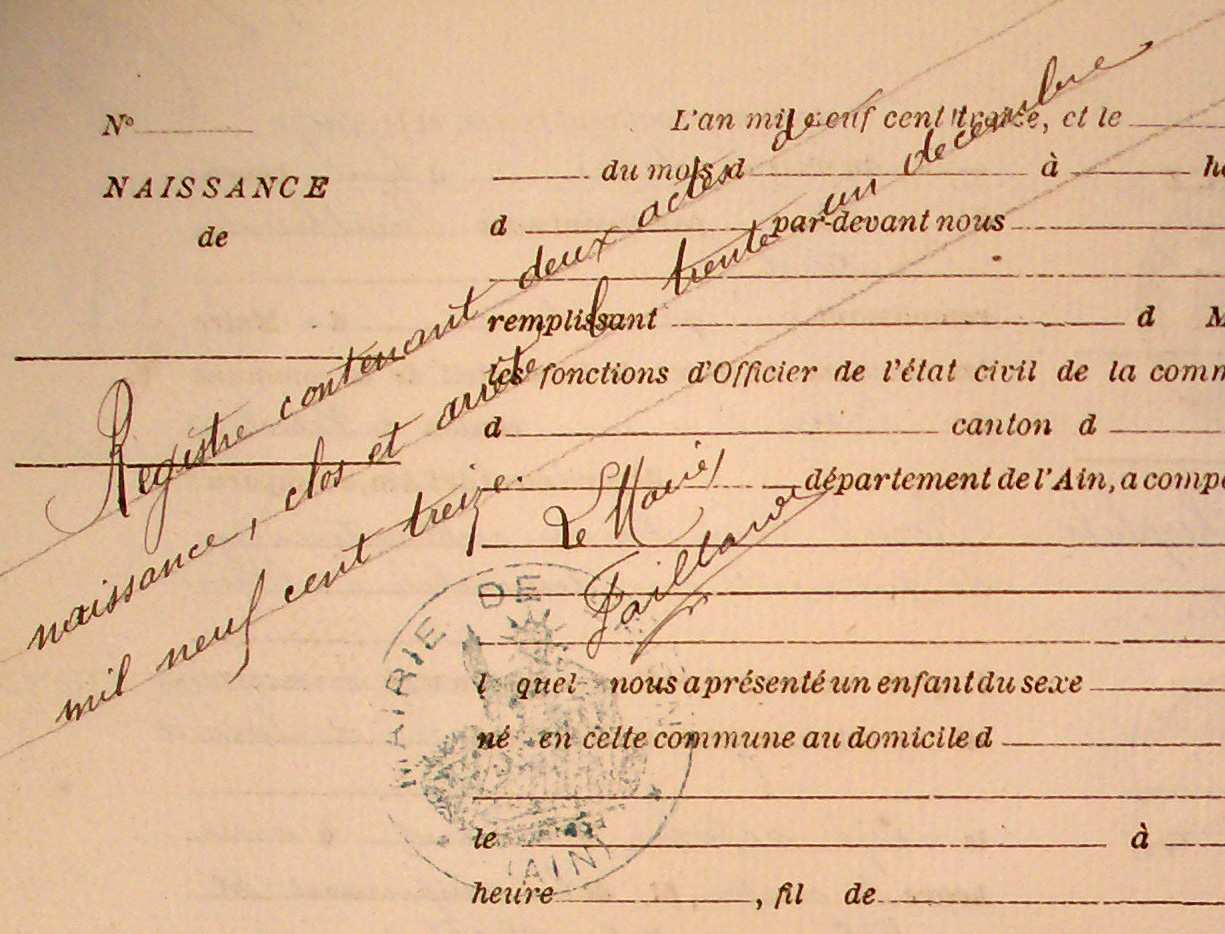 N°
NAISSANCE
de
L'an mil neuf cent treize, et le
du mois d à h
d par-devant nous
remplissant d M
les fonctions d'Officier de l'état civil de la comm
d canton d
département de l'Ain, a comp
l quel nous a présenté un enfant du sexe
né en cette commune au domicile d
le à
heure , fil de
Registre contenant deux actes de
naissance, clos et arrêté le trente un décembre
mil neuf cent treize.
Le Maire
MAIRIE DE
(AIN)